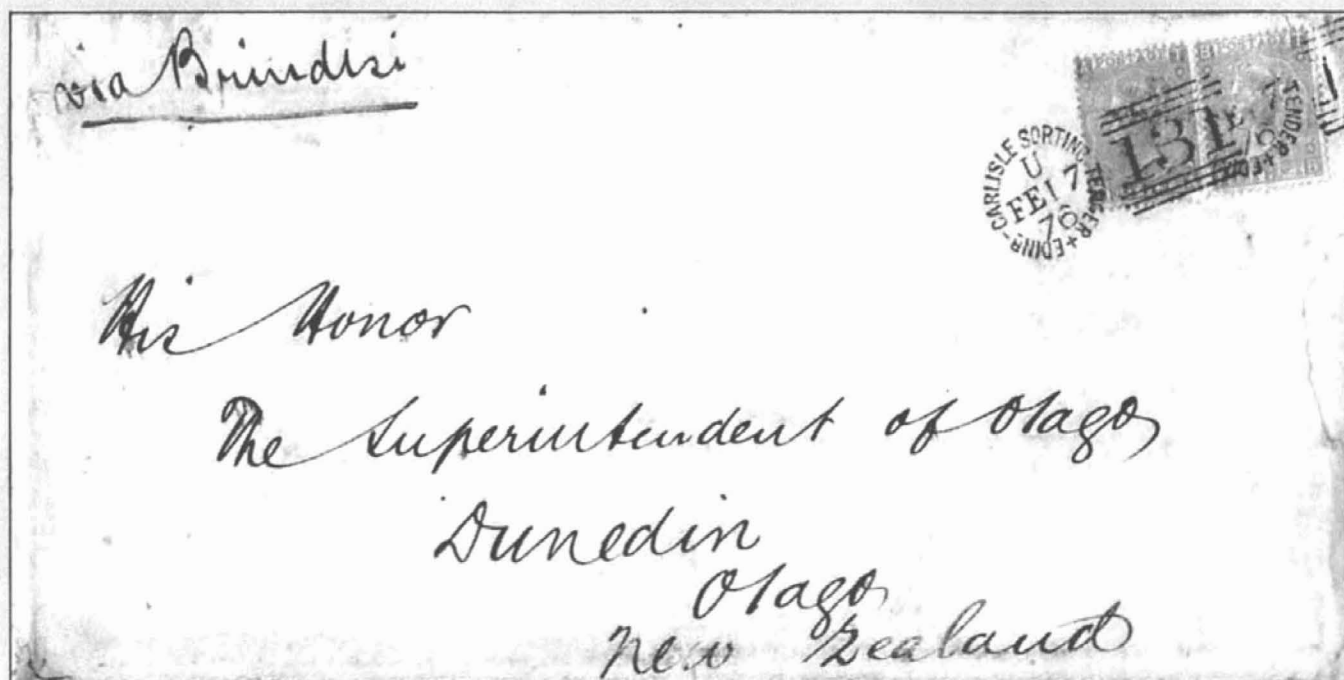 via Brindisi
EDINR - CARLISLE SORTING TENDER +
U
FE 17
76
131
7
76
TENDER +
His Honor
The Superintendent of Otago
Dunedin
Otago
New Zealand